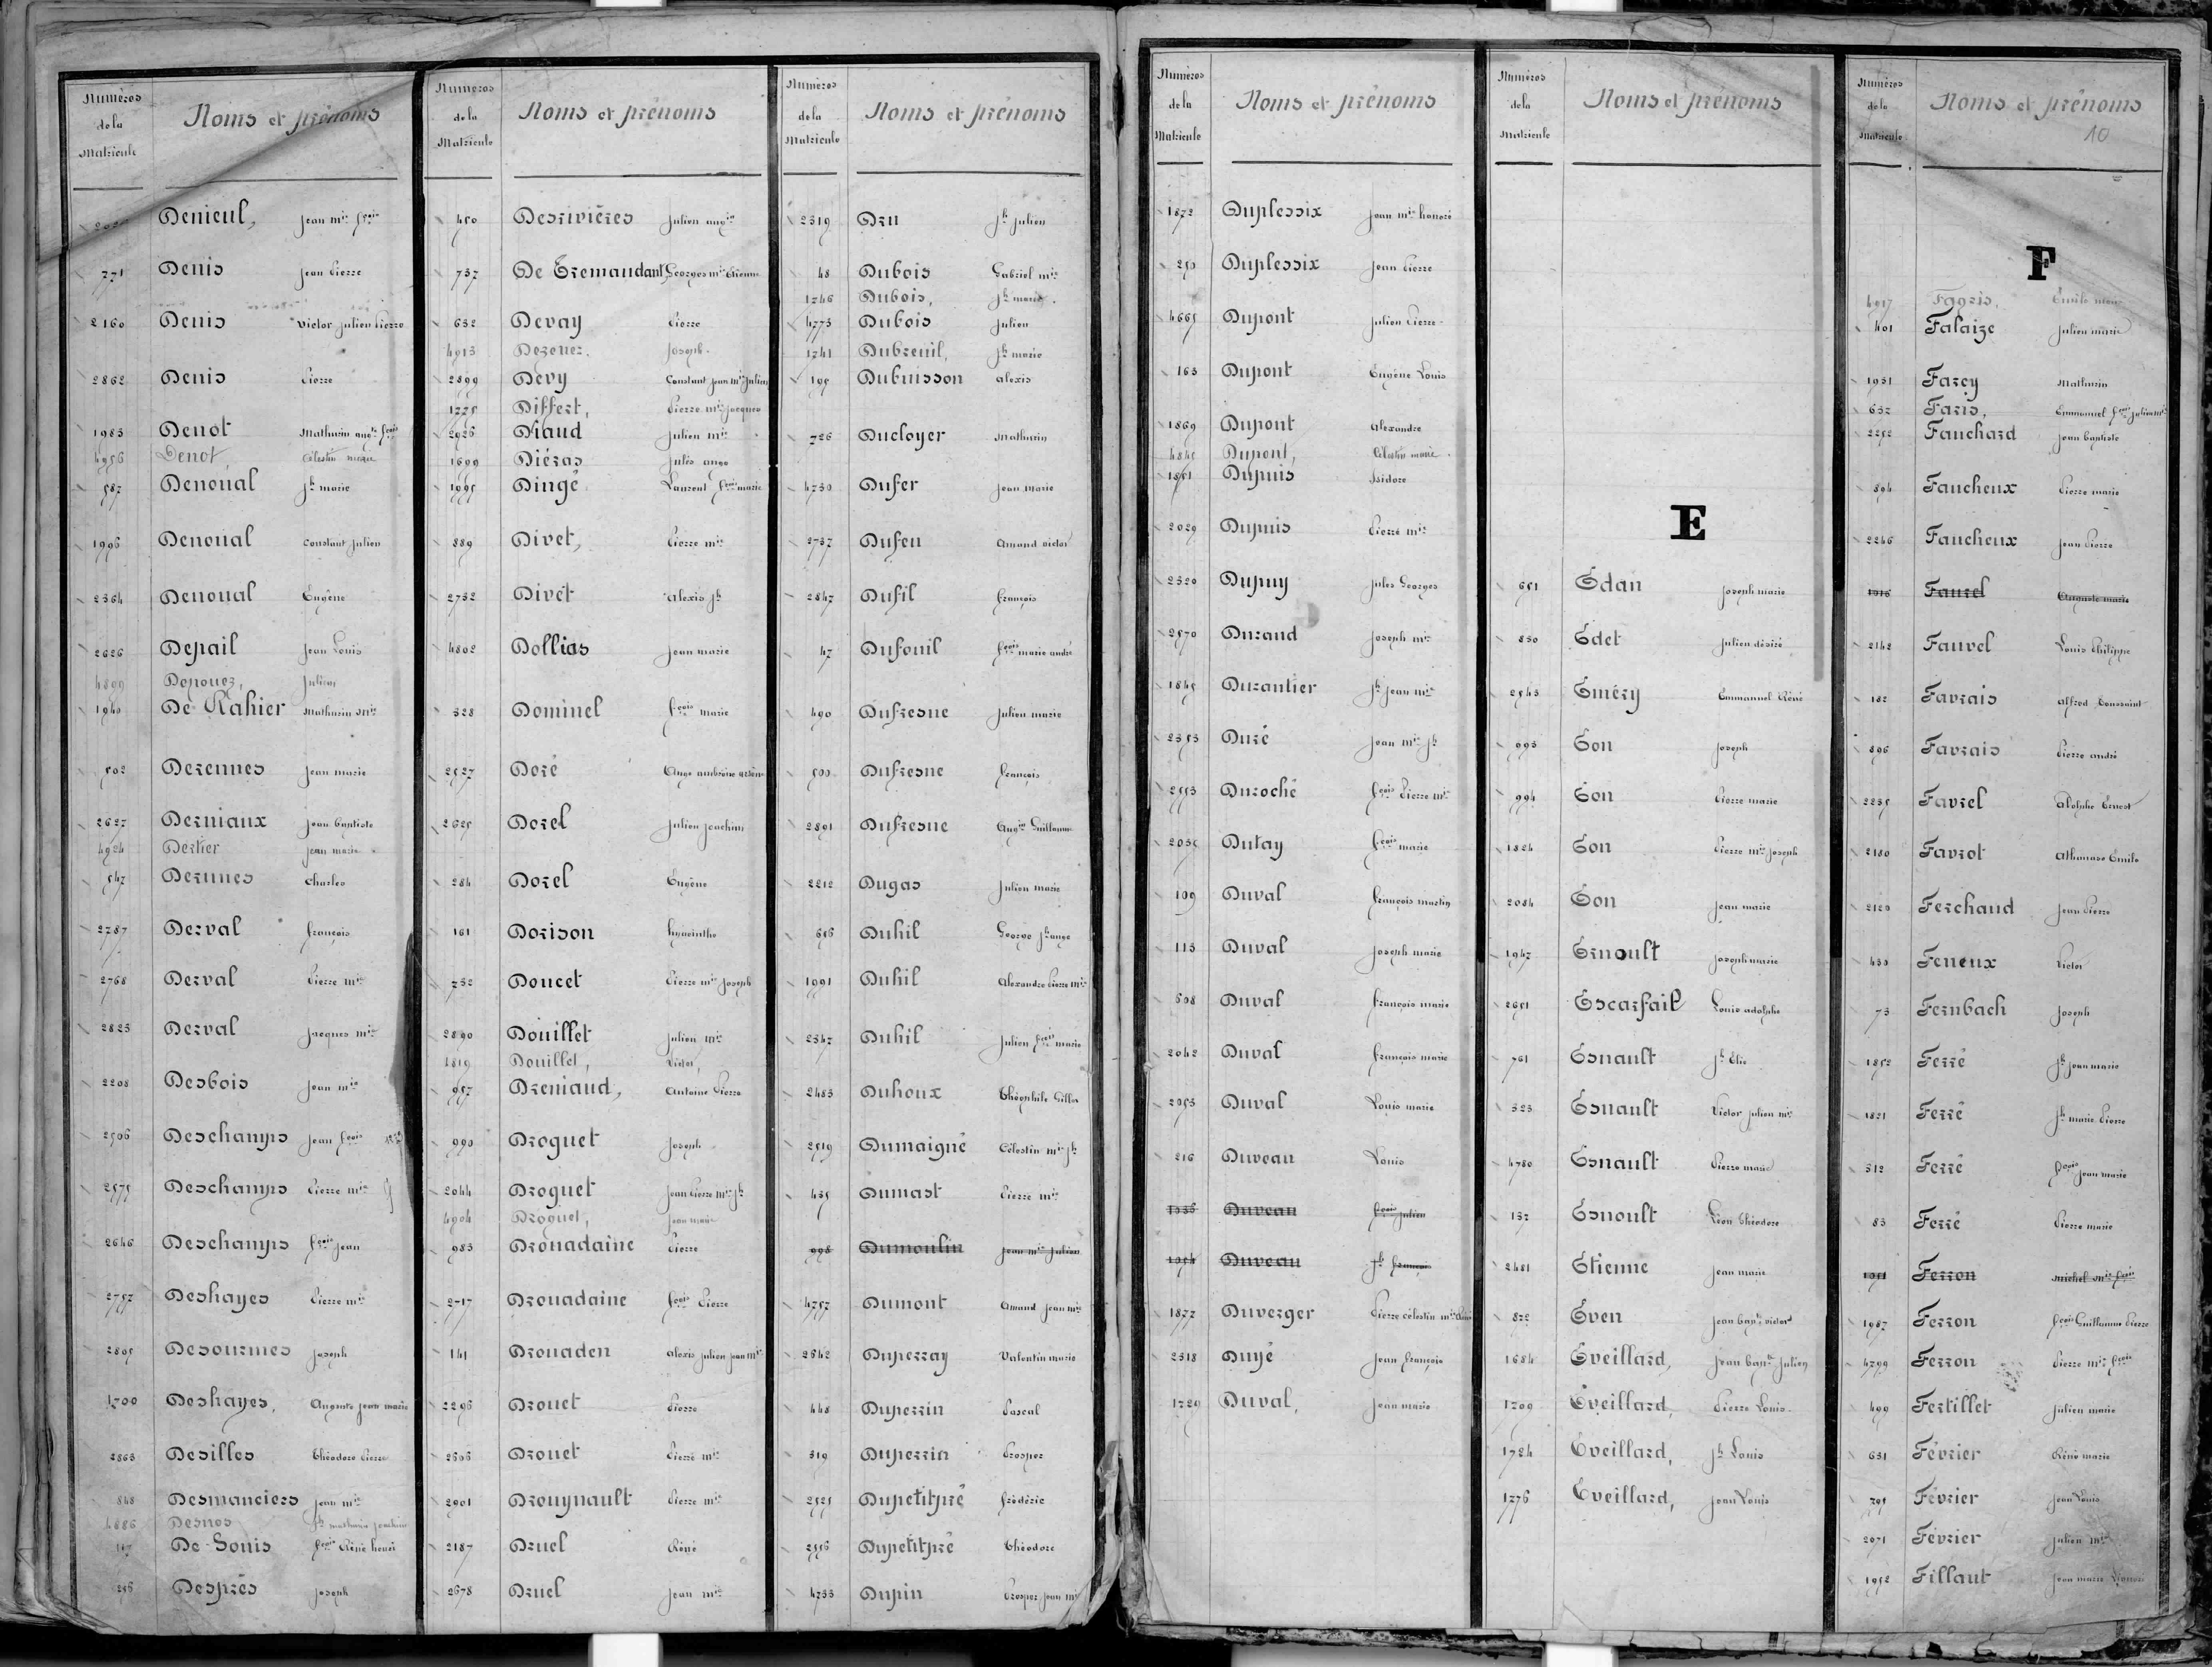 Numéros de la Matricule Noms et prénoms
Denieul, Jean mie fçois
771 Denis Jean Pierre
2160 Denis Victor Julien Pierre
2862 Denis Pierre
1983 Denot Mathurin augte fçois
4956 Denot Célestin marie
587 Denoual Jh marie
1996 Denoual Constant Julien
2364 Denoual Eugène
2626 Depail Jean Louis
4809 Depouez, Julien
1940 De Rahier Mathurin mie
502 Derennes Jean marie
2627 Derniaux Jean baptiste
4924 Dertier Jean marie
547 Derunes Charles
2787 Derval françois
2768 Derval Pierre mie
2823 Derval Jacques mie
2208 Desbois Jean mie
2506 Deschamps Jean fçois
2575 Deschamps Pierre mie
2646 Deschamps fçois Jean
2757 Deshayes Pierre mie
2805 Desourmes Joseph
1700 Deshayes, Auguste Jean marie
2863 Desilles Théodore Pierre
848 Desmanciers Jean mie
4886 Desnos Jh mathurin Joachim
117 De Sonis fçois Réné henri
256 Després Joseph
Numéros de la Matricule Noms et prénoms
450 Desrivières Julien augte
737 De Tremaudant Georges mie Etienne
652 Devay Pierre
4913 Dezouez. Joseph.
2899 Dévy Constant Jean mie Julien
1775 Differt, Pierre mie Jacques
2926 Diaud Julien mie
1699 Diéras Jules ange
1995 Dingé Laurent fçois marie
889 Divet, Pierre mie
2732 Divet Alexis Jh
4802 Dollias Jean marie
328 Dominel fçois marie
2527 Doré Ange ambroise arsène
2625 Dorel Julien Joachim
284 Dorel Eugène
161 Dorison hyacinthe
732 Doucet Pierre mie Joseph
2890 Douillet Julien mie
4819 Douillet, Victor,
957 Dreniaud, Antoine Pierre
990 Droguet Joseph
2044 Droguet Jean Pierre mie Jh
4904 Droguet, Jean marie
983 Drouadaine Pierre
2717 Drouadaine fçois Pierre
141 Drouaden Alexis Julien Jean mie
2296 Drouet Pierre
2606 Drouet Pierre mie
2901 Drouynault Pierre mie
2187 Druel Réné
2678 Druel Jean mie
Numéros de la Matricule Noms et prénoms
2319 Dru Jh Julien
48 Dubois Gabriel mie
1746 Dubois, Jh marie.
4773 Dubois Julien
1741 Dubreuil, Jh marie
195 Dubuisson Alexis
726 Ducloyer Mathurin
4730 Dufer Jean marie
2737 Dufeu Amand victor
2847 Dufil françois
47 Dufouil fçois marie andré
490 Dufresne Julien marie
500 Dufresne françois
2891 Dufresne Augte Guillaume
2212 Dugas Julien marie
656 Duhil George Jh ange
1991 Duhil Alexandre Pierre mie
2347 Duhil Julien fçois marie
2483 Duhoux Théophile Gilles
2519 Dumaigné Célestin mie Jh
435 Dumast Pierre mie
998 Dumoulin Jean mie Julien
4757 Dumont Amand Jean mie
2642 Duperray Valentin marie
448 Duperrin Pascal
319 Duperrin Prosper
2525 Dupetitpré frédéric
2556 Dupetitpré Théodore
4733 Dupin Prosper Jean mie
Numéros de la Matricule Noms et prénoms
1872 Duplessix Jean mie honoré
250 Duplessix Jean Pierre
4665 Dupont Julien Pierre
163 Dupont Eugène Louis
1869 Dupont Alexandre
4845 Dupont, Célestin marie.
1851 Dupuis Isidore
2029 Dupuis Pierre mie
2320 Dupuy Jules Georges
2570 Durand Joseph mie
1845 Durantier Jh Jean mie
2353 Duré Jean mie Jh
2553 Duroché fçois Pierre mie
2035 Dutay fçois marie
109 Duval françois martin
113 Duval Joseph marie
508 Duval françois marie
2042 Duval françois marie
2053 Duval Louis marie
216 Duveau Louis
Duveau fçois Julien
1054 Duveau Jh françois
1877 Duverger Pierre célestin mie
2318 Duyé Jean françois
1729 Duval, Jean marie
Numéros de la Matricule Noms et prénoms
E
651 Edan Joseph marie
850 Edet Julien désiré
2543 Eméry Emmanuel Réné
993 Eon Joseph
994 Eon Pierre marie
1824 Eon Pierre mie Joseph
2084 Eon Jean marie
1947 Ernoult Joseph marie
2651 Escarfail Louis adolphe
761 Esnault Jh Elie
323 Esnault Victor Julien mie
4780 Esnault Pierre marie
137 Esnoult Léon Théodore
2481 Etienne Jean marie
872 Even Jean bapte victor
1684 Eveillard, Jean bapte Julien
1709 Eveillard, Pierre Louis.
1724 Eveillard, Jh Louis
1776 Eveillard, Jean Louis
Numéros de la Matricule Noms et prénoms
10
F
4917 Fagris, Emile marie
401 Falaize Julien marie
1931 Farcy Mathurin
637 Faris, Emmanuel fçois Julien mie
2252 Fauchard Jean baptiste
894 Faucheux Pierre marie
2246 Faucheux Jean Pierre
Faurel Auguste marie
2142 Fauvel Louis Philippe
182 Favrais Alfred Toussaint
896 Favrais Pierre andré
2235 Favrel Adolphe Ernest
2180 Favrot Athanase Emile
2120 Ferchaud Jean Pierre
430 Feneux Victor
73 Fernbach Joseph
1852 Ferré Jh Jean marie
1821 Ferré Jh marie Pierre
312 Ferré fçois Jean marie
83 Ferré Pierre marie
1051 Ferron Michel mie fçois
1987 Ferron fçois Guillaume Pierre
4799 Ferron Pierre mie fçois
499 Fertillet Julien marie
631 Février Réné marie
795 Février Jean Louis
2071 Février Julien mie
1952 Fillaut Jean marie